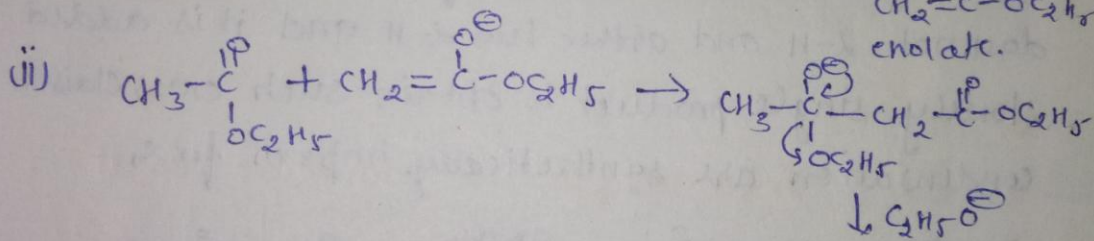 CH₂=C-OC₂H₅
enolate.
ii) CH₃-C(=O)(OC₂H₅) + CH₂=C(O⊖)-OC₂H₅ → CH₃-C(O⊖)(OC₂H₅)-CH₂-C(=O)-OC₂H₅
↓ C₂H₅O⊖